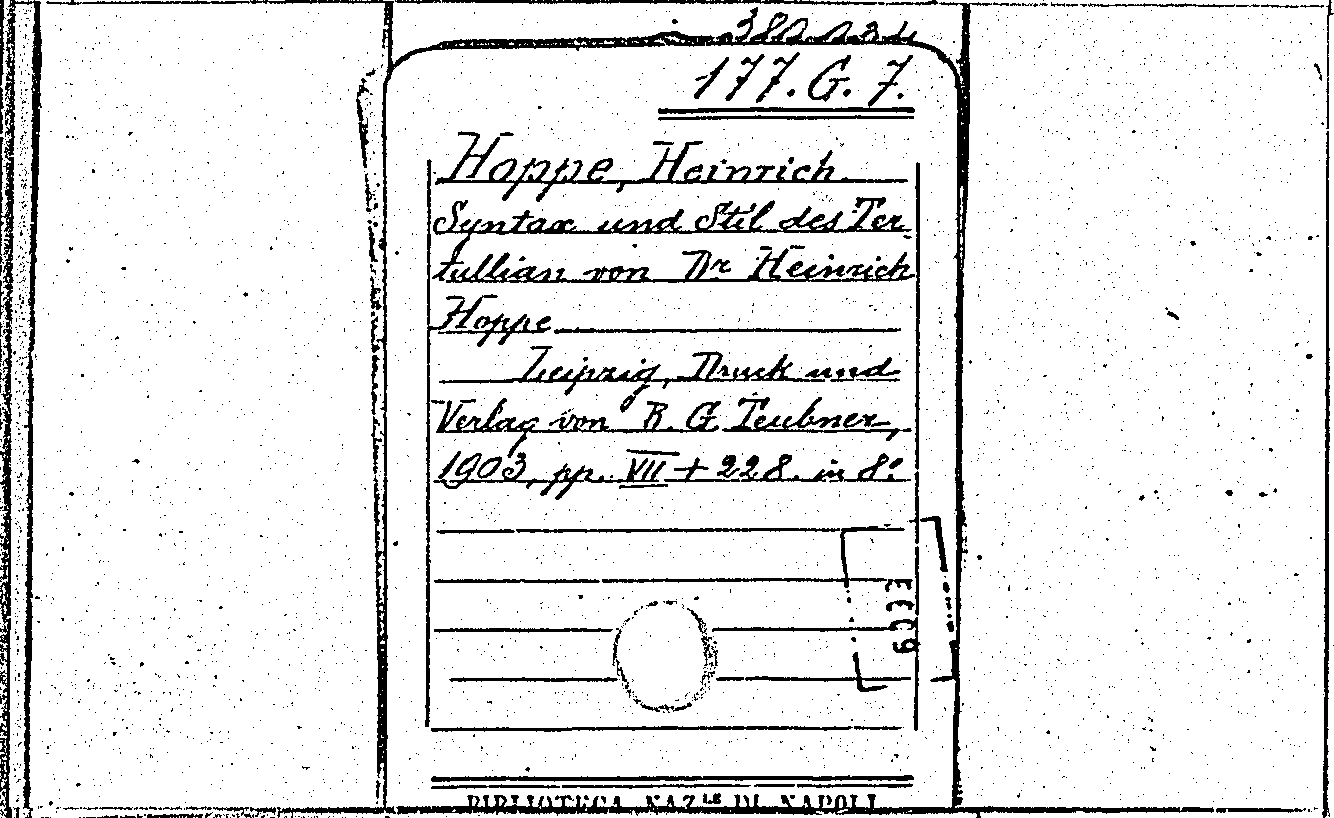 380034
177. G. 7.
Hoppe, Heinrich
Syntax und Stil des Ter-
tullian von Dr Heinrich
Hoppe
Leipzig, Druck und
Verlag von B. G. Teubner,
1903, pp. VII + 228. in 8.°
BIBLIOTECA NAZLE DI NAPOLI